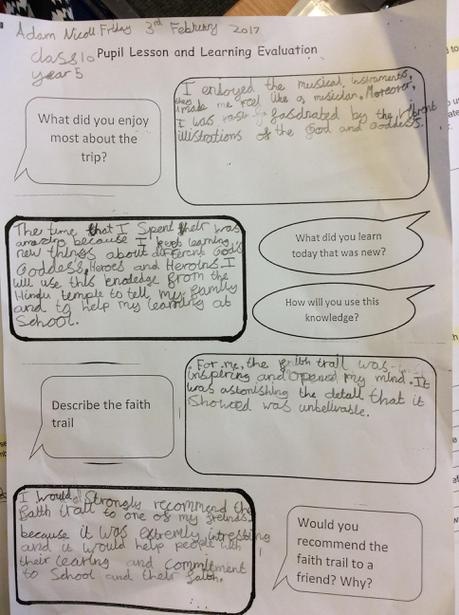 Adam Nicoll Friday 3rd February 2017
class 10 Pupil Lesson and Learning Evaluation
year 5
What did you enjoy
most about the
trip?
I enloyed the musical instraments,
they made me feel like a musician. Moreover,
I was fasdnated by the vibrant
illistrations of the God and Goddess.
The time that I spent their was
amazing because I kept learning
new things about different God's
Goddess, Heroes and Heroins. I
will use this knoledge from the
Hindu temple to tell my family
and to help my learning at
School.
What did you learn
today that was new?
How will you use this
knowledge?
Describe the faith
trail
For me, the faith trail was
inspering and opened my mind. It
was astonishing the detail that it
Showed was unbelivable.
I would Strongly recommend the
faith trail to one of my freinds
because it was extremly intresting
and it would help people with
their learing and commitment
to School and their faith.
Would you
recommend the
faith trail to a
friend? Why?